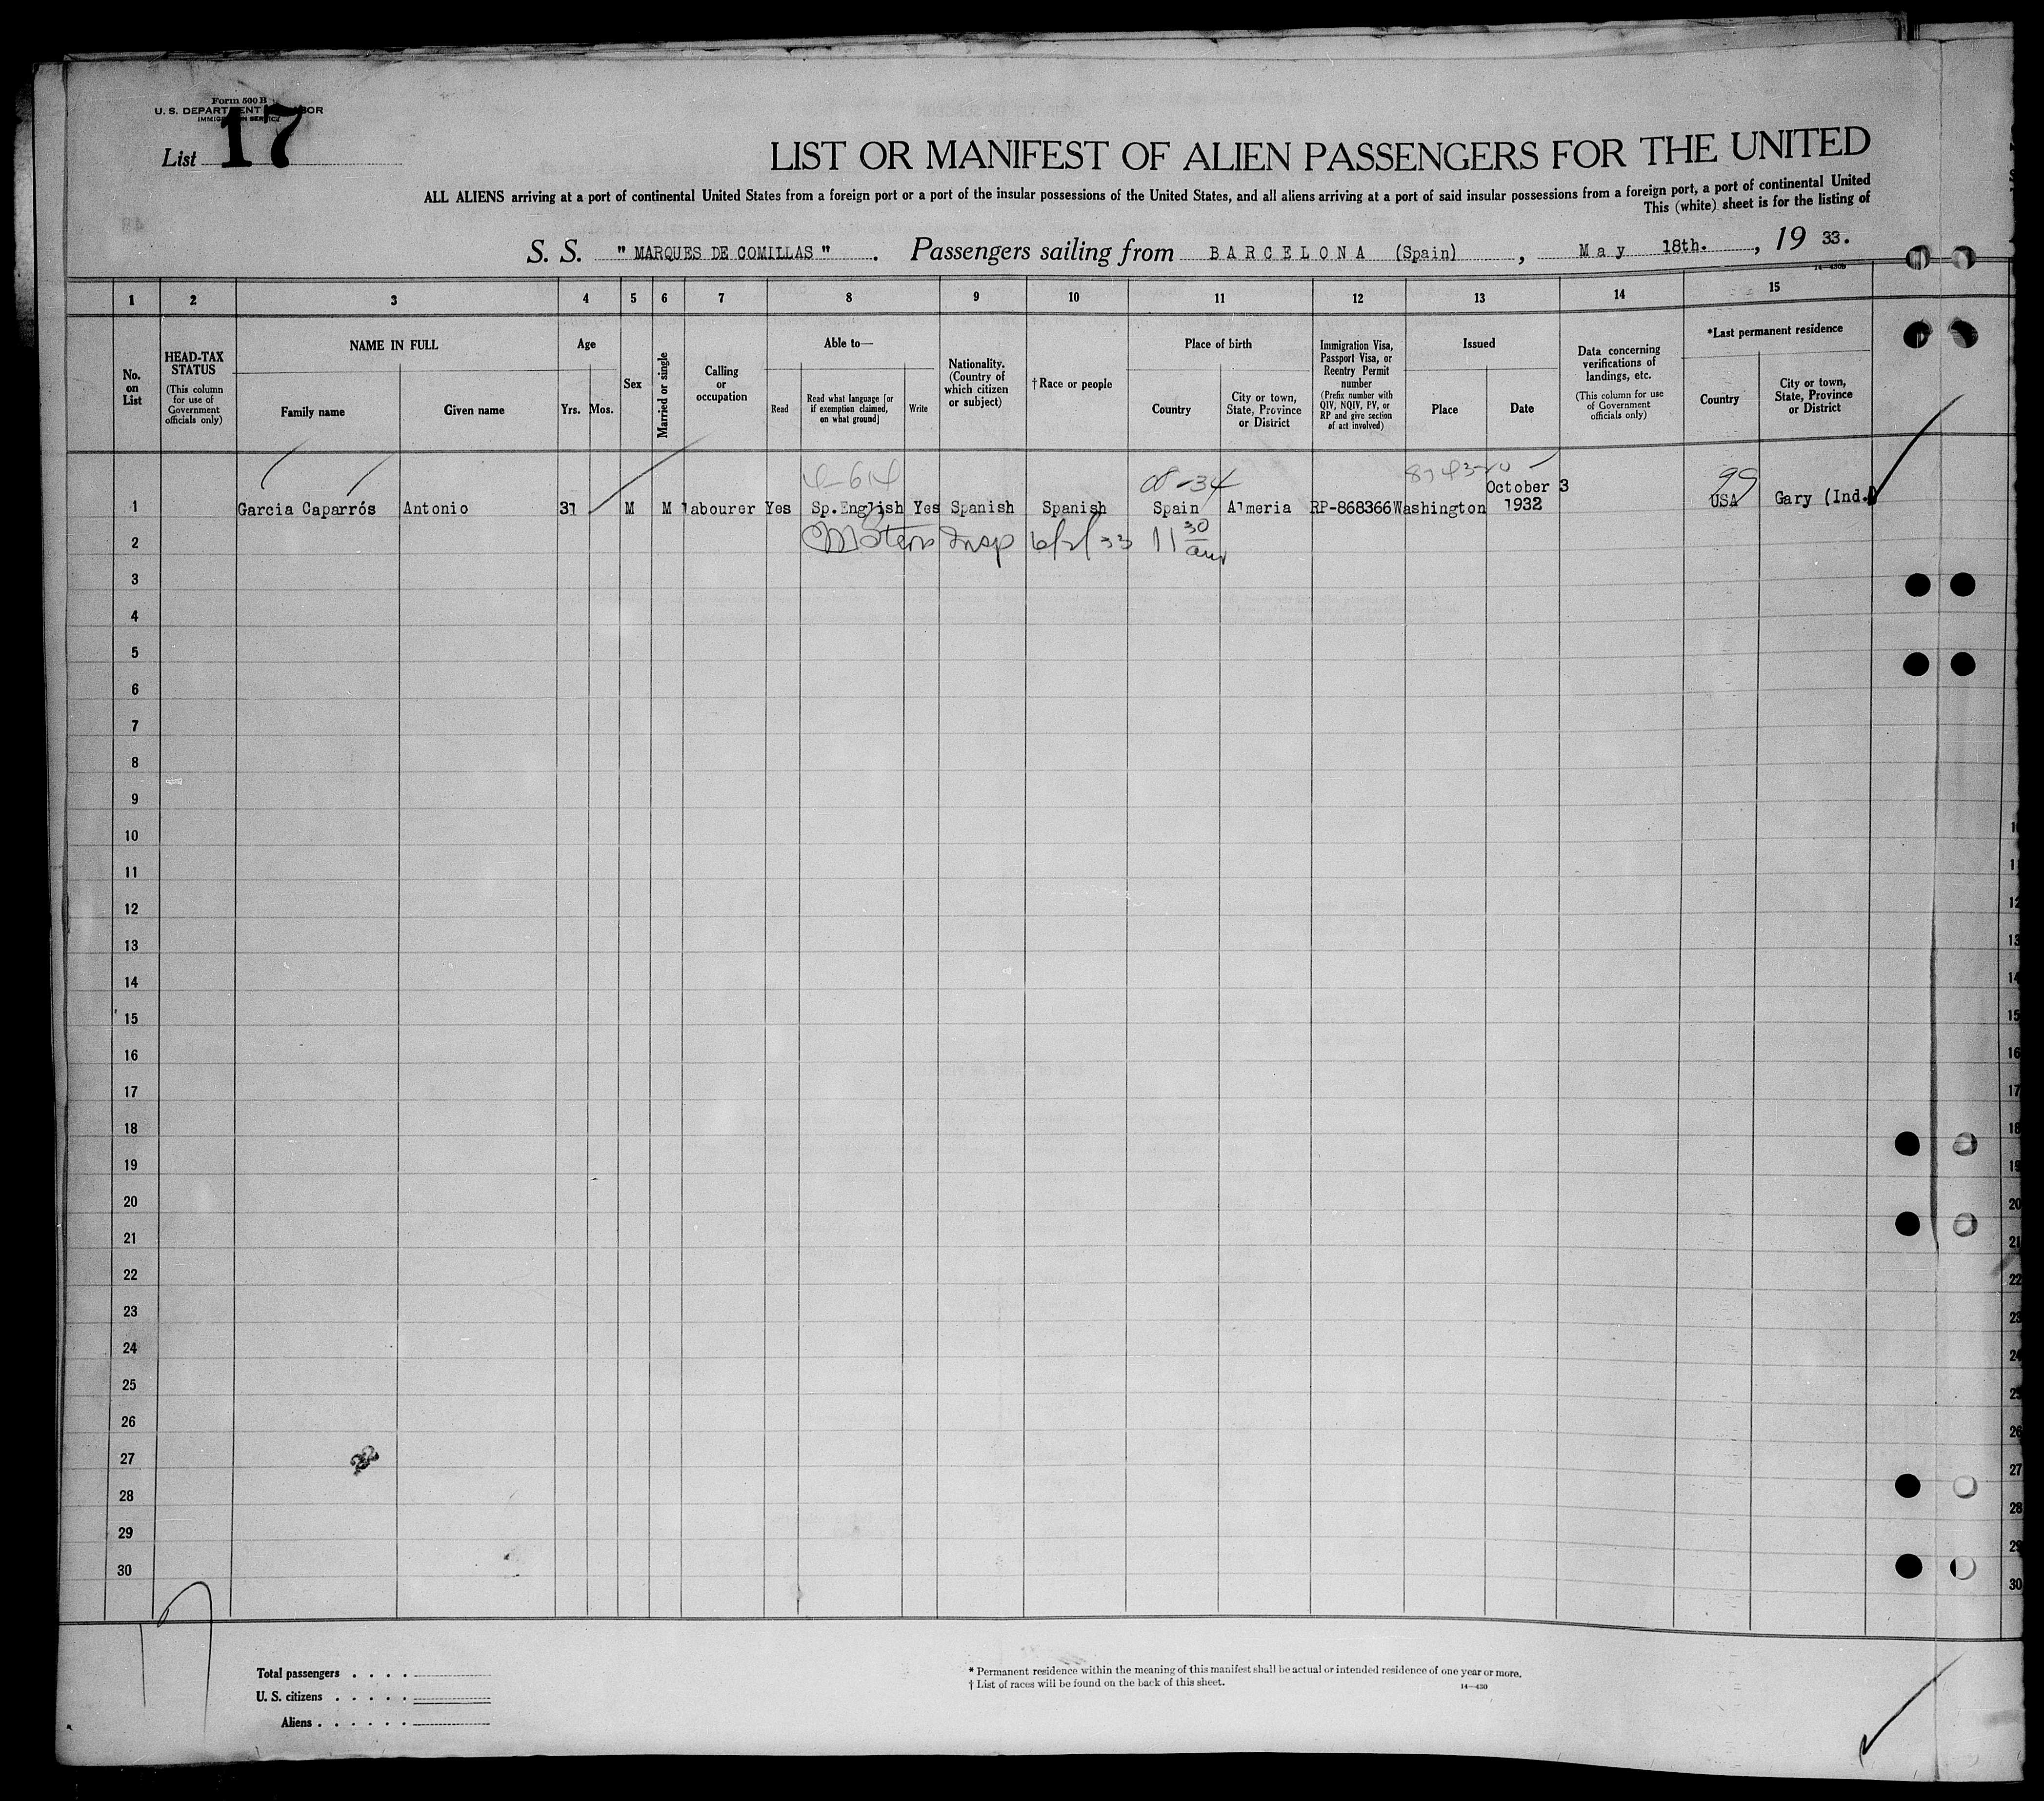 Form 500 B
U. S. DEPARTMENT LABOR
IMMIGRATION SERVICE
List 17
LIST OR MANIFEST OF ALIEN PASSENGERS FOR THE UNITED
ALL ALIENS arriving at a port of continental United States from a foreign port or a port of the insular possessions of the United States, and all aliens arriving at a port of said insular possessions from a foreign port, a port of continental United
This (white) sheet is for the listing of
S. S. " MARQUES DE COMILLAS " . Passengers sailing from BARCELONA (Spain) , May 18th. , 19 33.
14—430B
1 2 3 4 5 6 7 8 9 10 11 12 13 14 15
No. on List
HEAD-TAX STATUS
(This column for use of Government officials only)
NAME IN FULL
Family name
Given name
Age
Yrs. Mos.
Sex
Married or single
Calling or occupation
Able to—
Read
Read what language [or if exemption claimed, on what ground]
Write
Nationality. (Country of which citizen or subject)
† Race or people
Place of birth
Country
City or town, State, Province or District
Immigration Visa, Passport Visa, or Reentry Permit number
(Prefix number with QIV, NQIV, PV, or RP and give section of act involved)
Issued
Place
Date
Data concerning verifications of landings, etc.
(This column for use of Government officials only)
*Last permanent residence
Country
City or town, State, Province or District
4-614
99
1 Garcia Caparrós Antonio 31 M M labourer Yes Sp.English Yes Spanish Spanish Spain Almeria RP-868366 Washington October 3 1932 USA Gary (Ind.)
2 Insp 6/2/33 11 30 am
3
4
5
6
7
8
9
10
11
12
13
14
15
16
17
18
19
20
21
22
23
24
25
26
27
28
29
30
Total passengers . . . .
U. S. citizens . . . . .
Aliens . . . . . .
* Permanent residence within the meaning of this manifest shall be actual or intended residence of one year or more.
† List of races will be found on the back of this sheet.
14—430